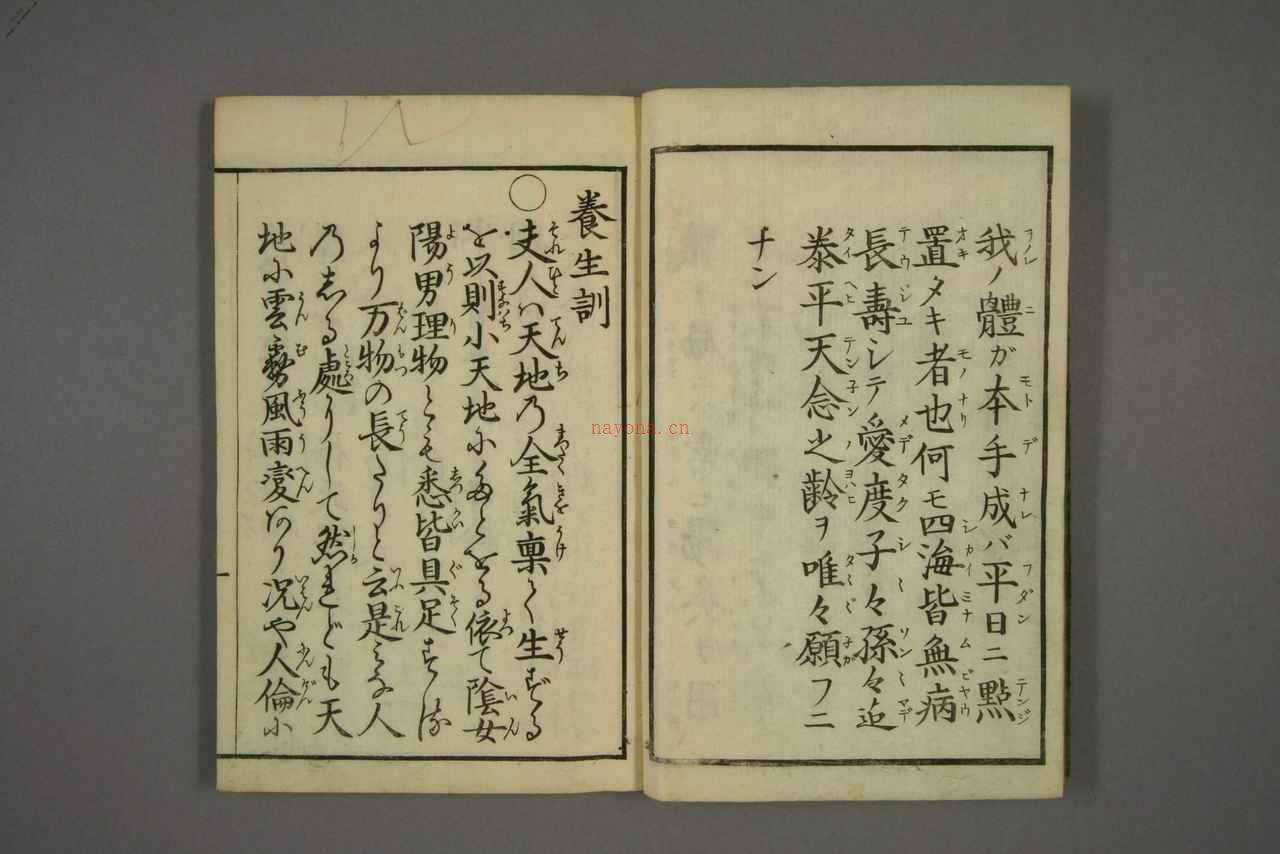 我ノ體ガ本手成バ平日ニ點
置タキ者也何モ四海皆無病
長壽シテ愛度子々孫々迄
泰平天念之齢ヲ唯々願フニ
ナン
養生訓
○夫人ハ天地乃全氣稟て生ずる
を以則小天地にたとをる依て陰女
陽男理物とも悉皆具足す
より万物の長たりと云是みな人
乃志る處にして然れども天
地に雲霧風雨変あり况や人倫に
nayona.cn